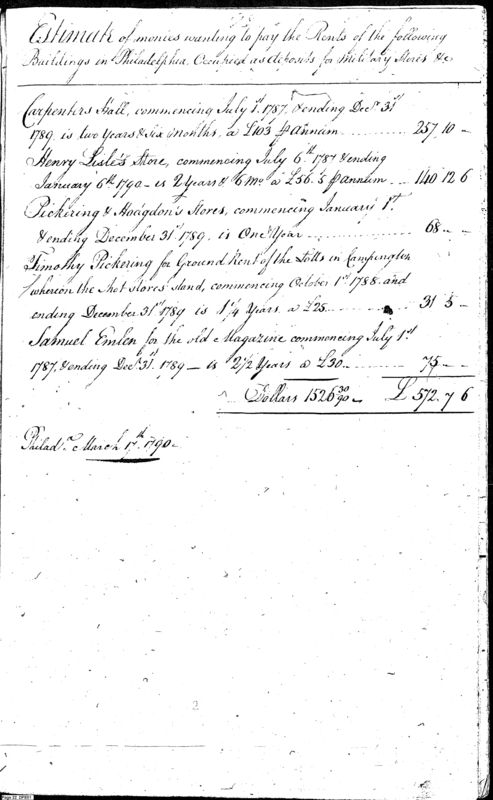 Estimate of monies wanting to pay the Rents of the following
Buildings in Philadelphia. Occupied as deposits for Military Stores &c
Carpenters Hall, commencing July 1st. 1787. & ending Decr. 31st
1789. is two Years & six months, a £103 ⅌ annum 257.10 –
Henry Lisle's Store, commencing July 6th 1787 & ending
January 6th 1790 – is 2 Years & 6 Mo. a £56.5 ⅌ annum 140 12 6
Pickering & Hodgdon's Stores, commencing January 1st.
& ending December 31st 1789. is One Year 68 – –
Timothy Pickering for Ground Rent of the Lotts in Campington
whereon the Shot Stores stand, commencing October 1st 1788. and
ending December 31st 1789 is 1¼ Years a £25 31 5 –
Samuel Emlen for the old Magazine commencing July 1st
1787. & ending Decr. 31st. 1789 – is 2½ Years a £30 – 75 – –
Dollars 1526 30/90 – £ 572. 7 6
Philada. March 17th. 1790 –
2